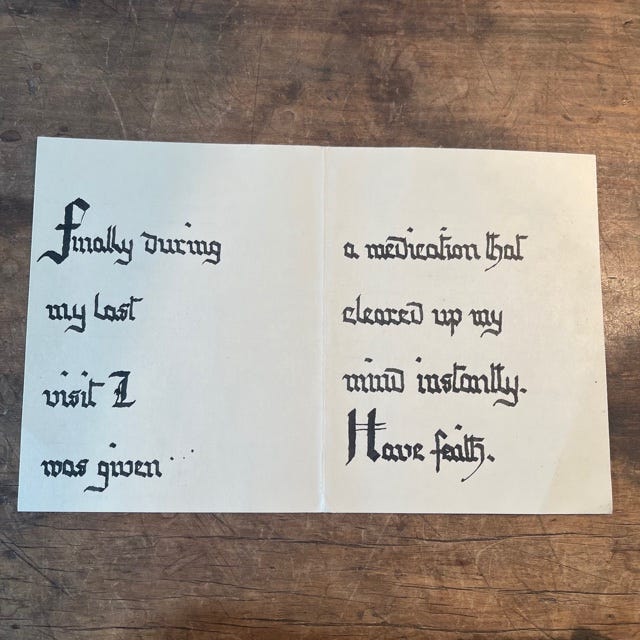 Finally during
my last
visit I
was given...
a medication that
cleared up my
mind instantly.
Have faith.